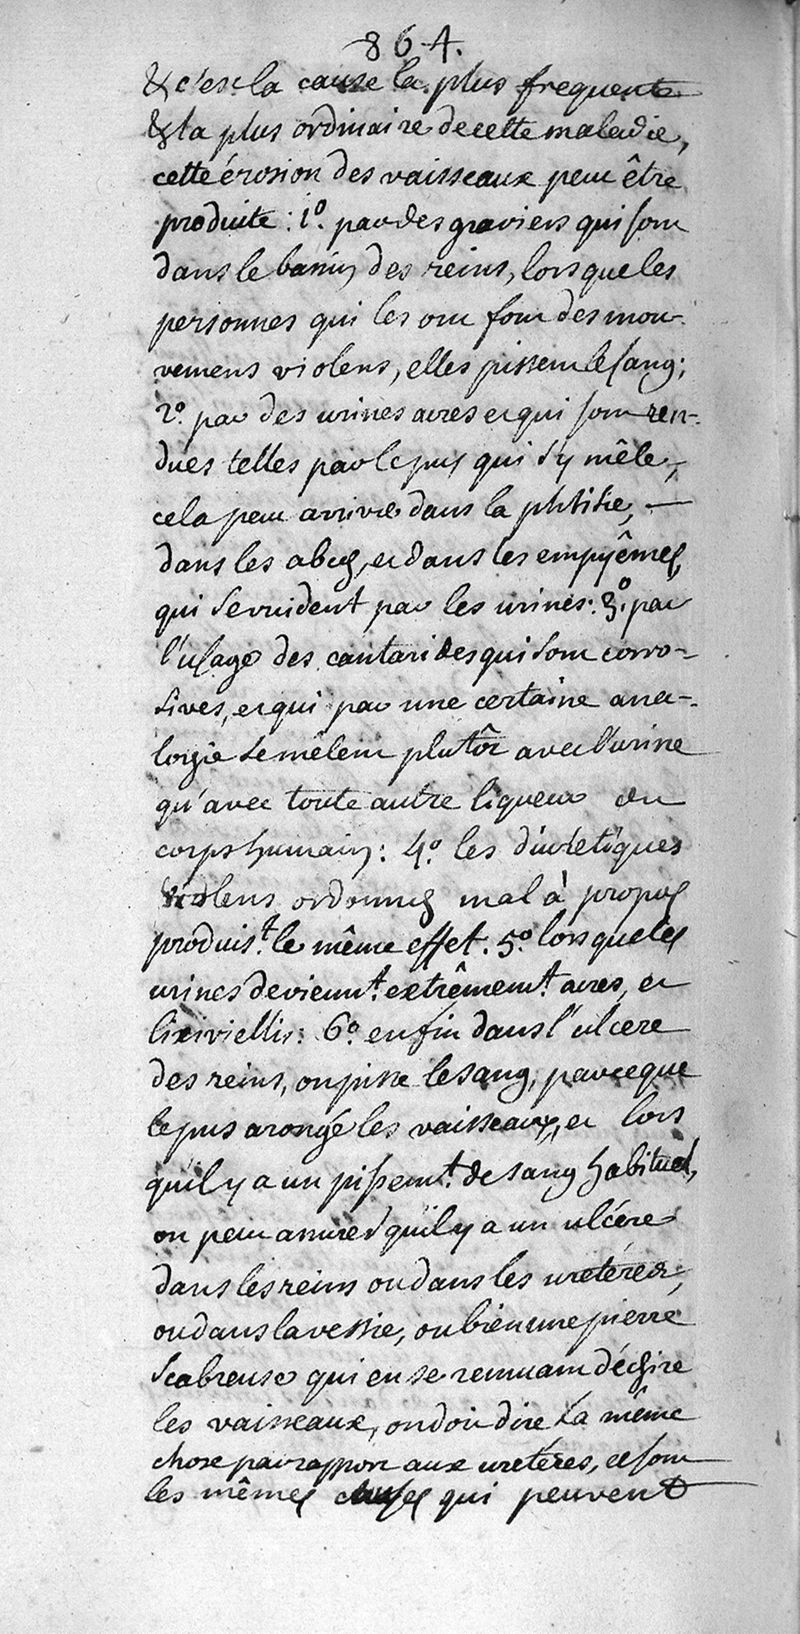 864.
& c'est la cause la plus frequente
& la plus ordinaire de cette maladie,
cette érosion des vaisseaux peut être
produite : 1º. par des graviers qui sont
dans le bassin des reins, lorsque les
personnes qui les ont font des mou-
vemens violens, elles pissent le sang ;
2º. par des urines acres et qui sont ren-
dues telles par le pus qui s'y mêle,
cela peut arriver dans la phtisie, —
dans les abcès, et dans les empyêmes
qui se vuident par les urines : 3º. par
l'usage des cantarides qui sont corro-
sives, et qui par une certaine ana-
logie se mêlent plutôt avec l'urine
qu'avec toute autre liqueur du
corps humain : 4º. les diurétiques
violens ordonnés mal à propos
produis.t le même effet. 5º. lorsque les
urines devienn.t extrêmem.t acres, et
lixivielles : 6º. enfin dans l'ulcere
des reins, on pisse le sang, parceque
le pus a rongé les vaisseaux, et lors
qu'il y a un pissem.t de sang habituel,
on peut assurer qu'il y a un ulcére
dans les reins ou dans les uretéres,
ou dans la vessie, ou bien une pierre
scabreuse qui en se remuant déchire
les vaisseaux, on doit dire la même
chose par rapport aux uretéres, ce sont
les mêmes causes qui peuvent